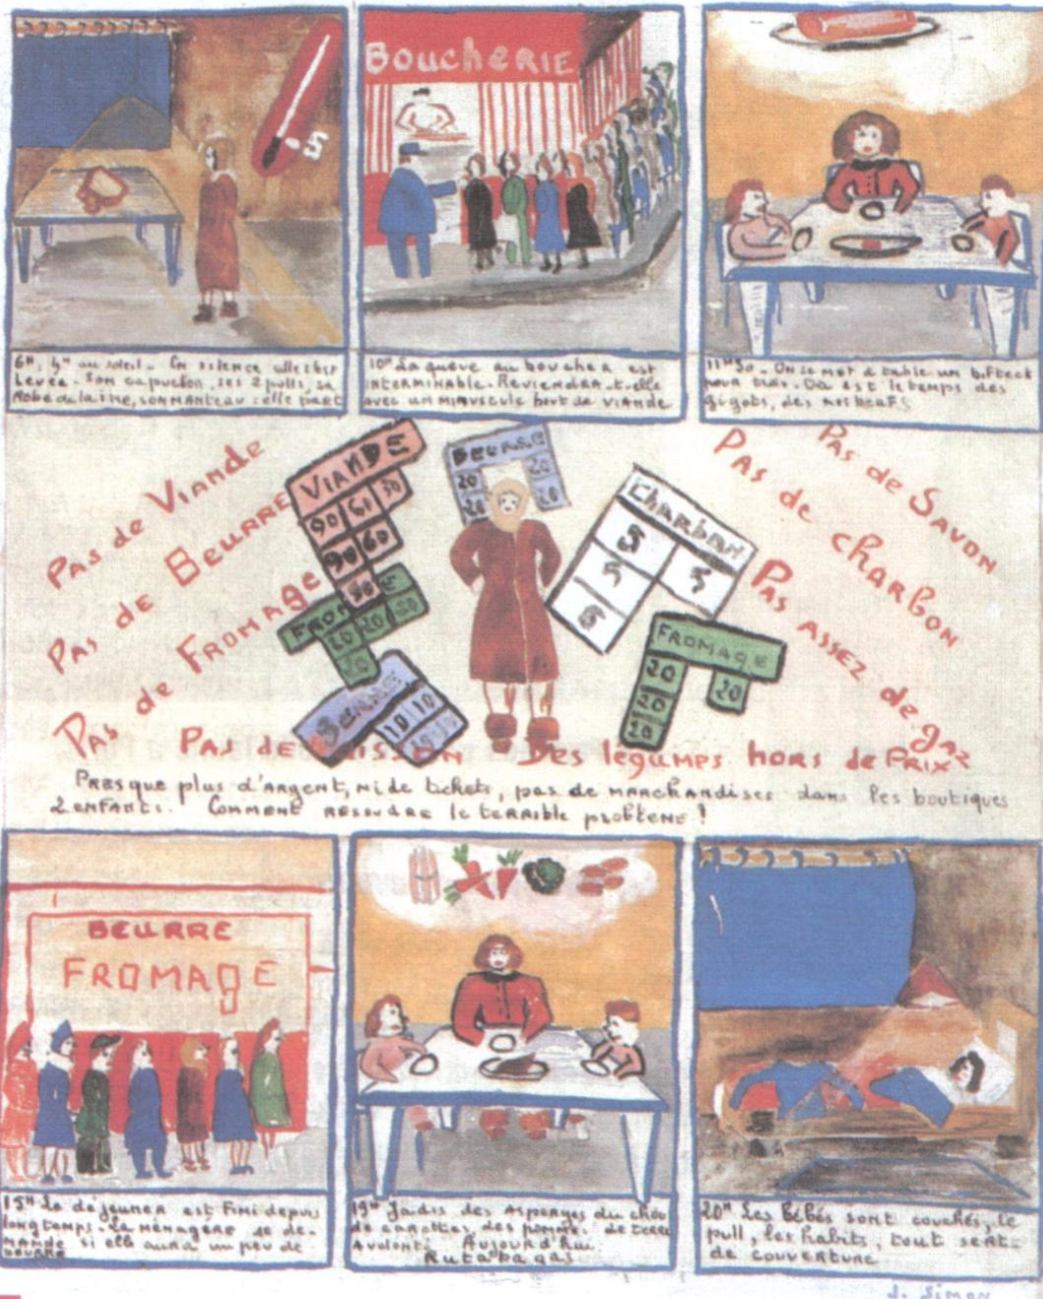 5
6H, 4H au soleil. En silence elle s'est
Levée. Son capuchon, ses 2 pulls, sa
Robe de laine, son manteau : elle part
BoucheRIE
10H La queue au boucher est
interminable. Reviendra-t-elle
avec un minuscule bout de viande
11H30. On se met à table. un bifteck
pour trois. Où est le temps des
gigots, des rosbeafs
Pas de Viande
Pas de Beurre
Pas de Fromage
Pas de
VIANDE
90 60 30
90 60
90
FROMAGE
20 20 20
20
BEURRE
10 10
10 10
BEURRE
20 20
20 20
Charbon
5
5 5
6
FROMAGE
20 20
20
20
Pas de Savon
Pas de charbon
Pas assez de gaz
Des légumes hors de Prix
Presque plus d'argent, ni de tickets, pas de marchandises dans les boutiques
2 enfants. Comment resoudre le terrible problème !
BEURRE
FROMAGE
15H Le déjeuner est fini depuis
longtemps. La ménagère se de-
mande si elle aura un peu de
beurre
19H Jadis des Asperges du chou
de carottes, des pommes de terre
à volonté. Aujourd'hui.
Rutabagas
20H Les Bébés sont couchés, le
pull, les habits, tout sert
de couverture
J. Simon